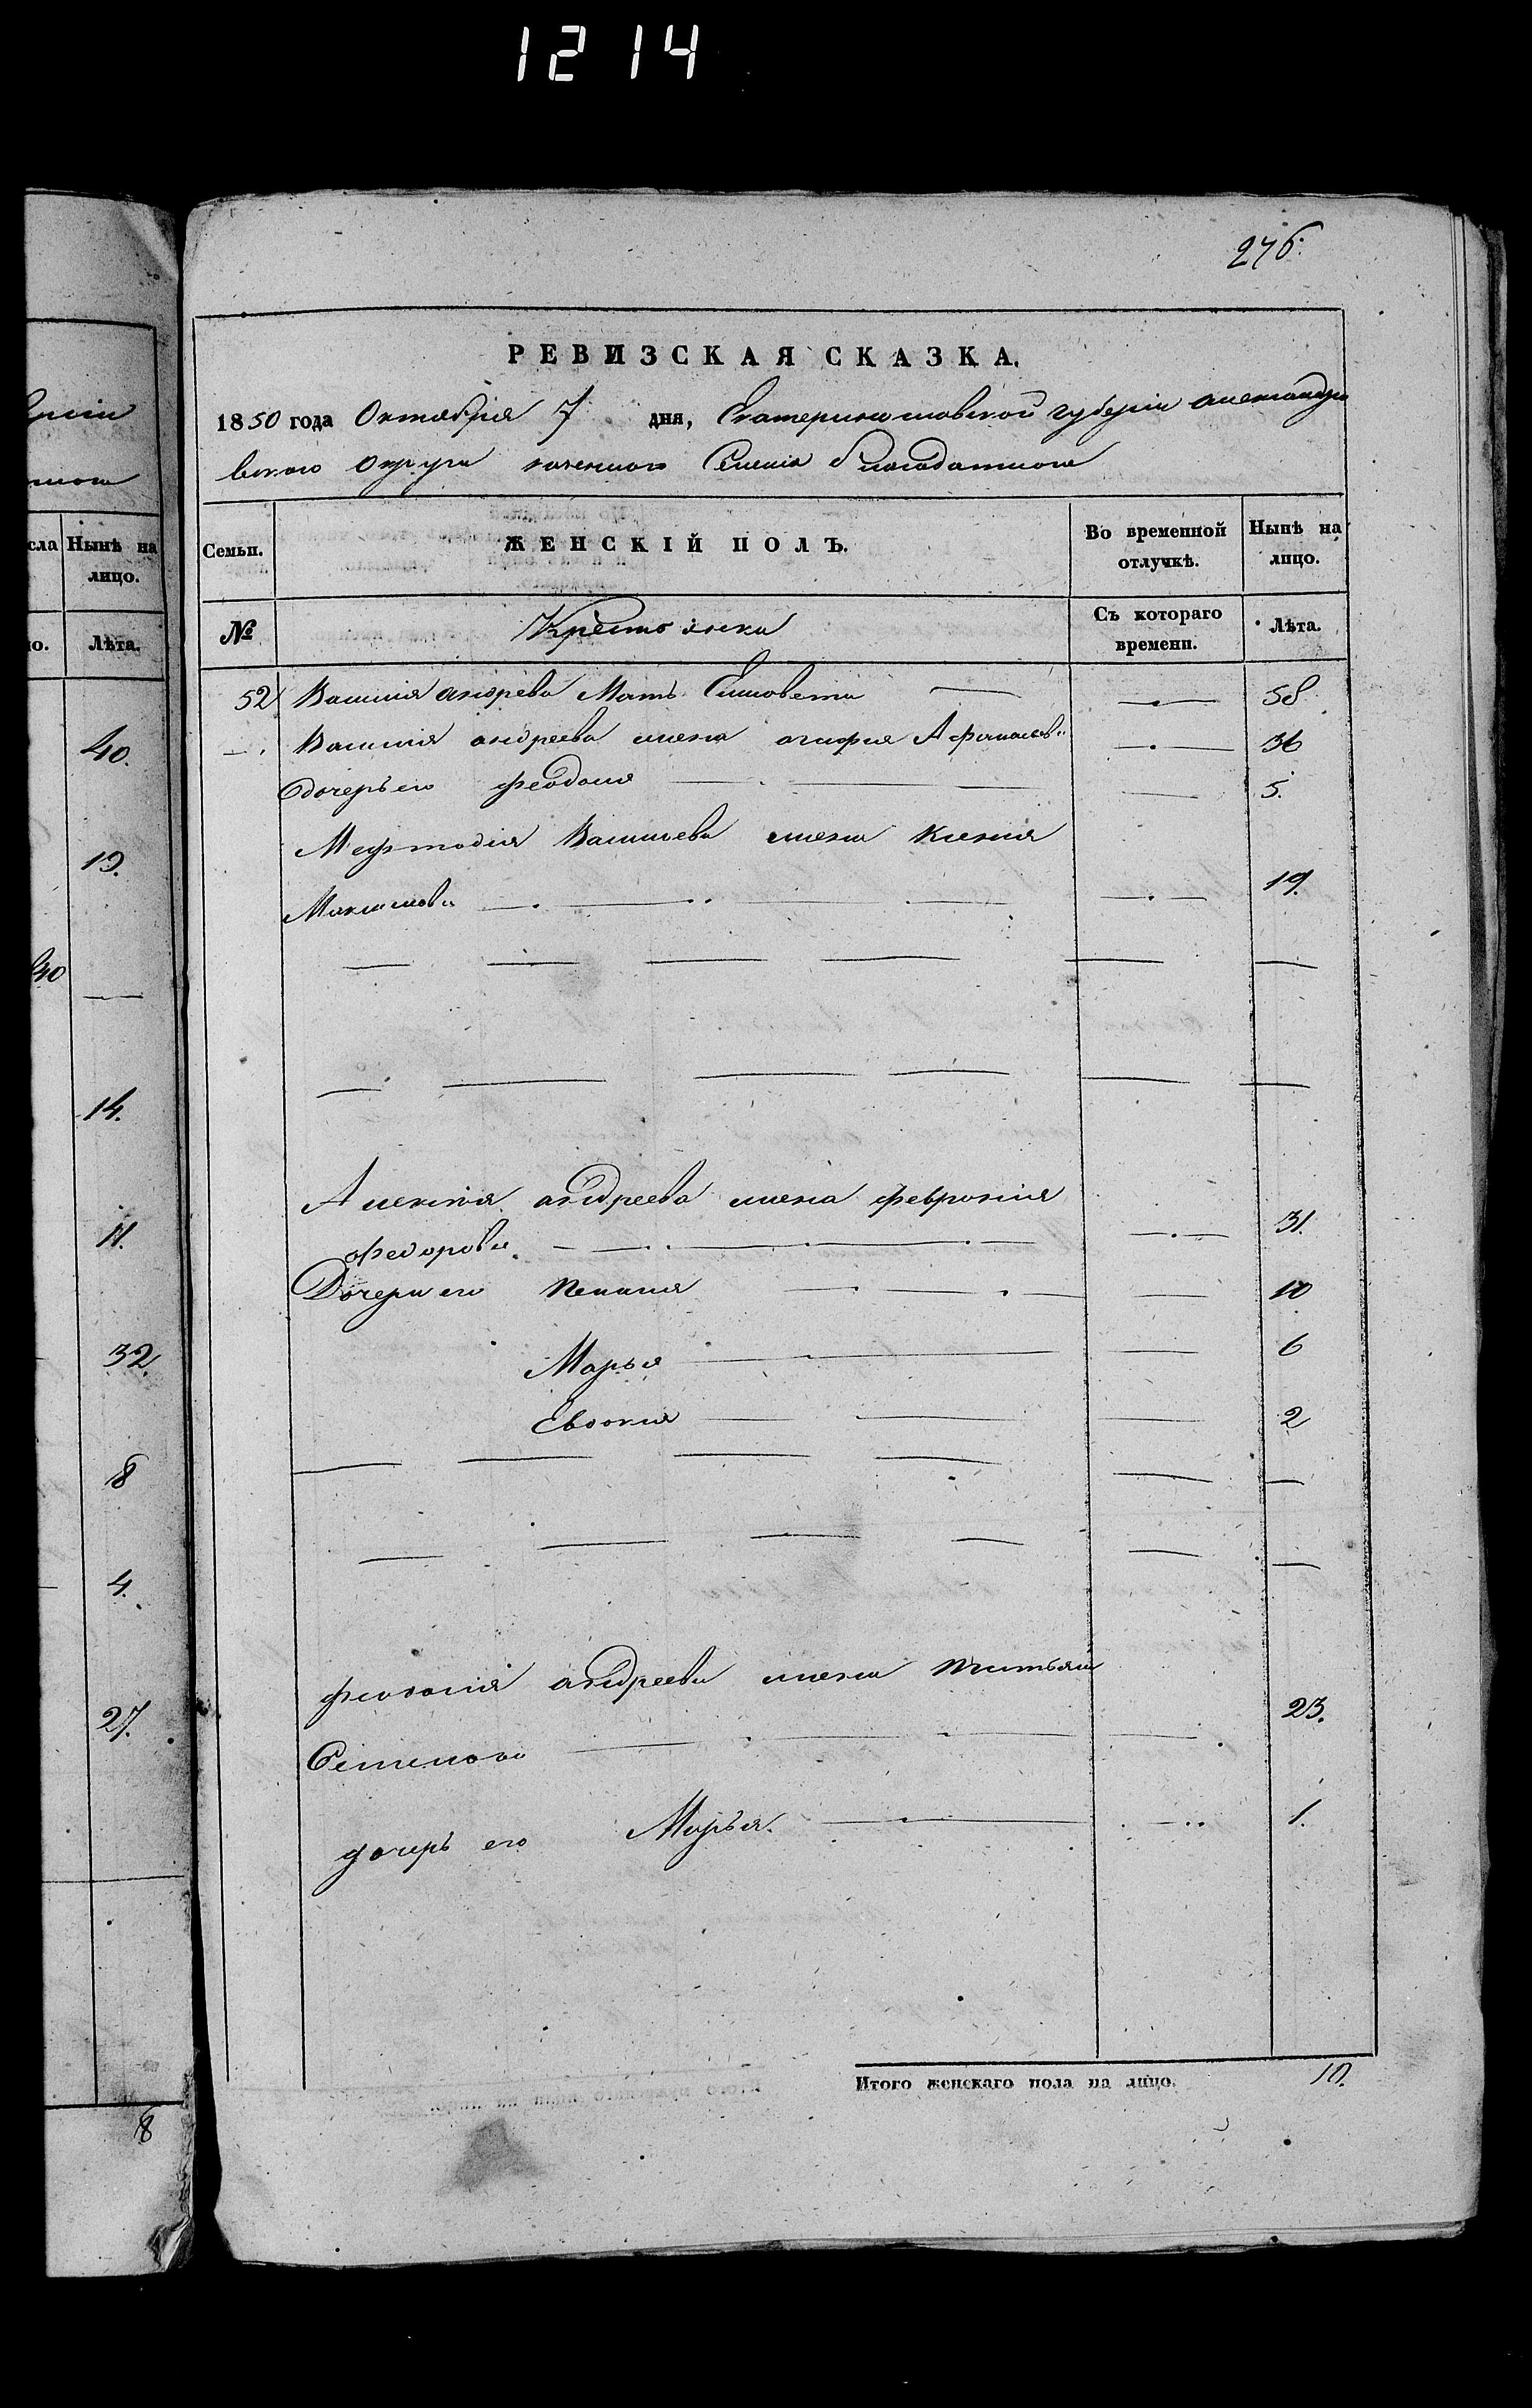 1214
276.
РЕВИЗСКАЯ СКАЗКА.
1850 года Октября 7 дня, Екатеринославской губерніи александро
вского округа казенного Селенія благодатного
рніи
сла Нынѣ на лицо.
Семьи. ЖЕНСКІЙ ПОЛЪ. Во временной отлучкѣ. Нынѣ на лицо.
ло. Лѣта.
№ Крестьянки Съ котораго времени. Лѣта.
52 Василія андрева Мать Елисовета — 58
Василія андреева жена агафія Афанасов. 36
дочерь его феодосія 5.
Мефтодія Васильева жена Ксенія
Максимова 19.
Алексѣя андреева жена феврония
Федорова 31.
Дочери его Пелагия 10
Марья 6
Евдокия 2
андреева жена татьяна
Семенова 23.
дочерь его Марья. 1.
Итого женскаго пола на лицо. 10.
40.
13.
40
14.
11.
32.
8
4.
27.
8